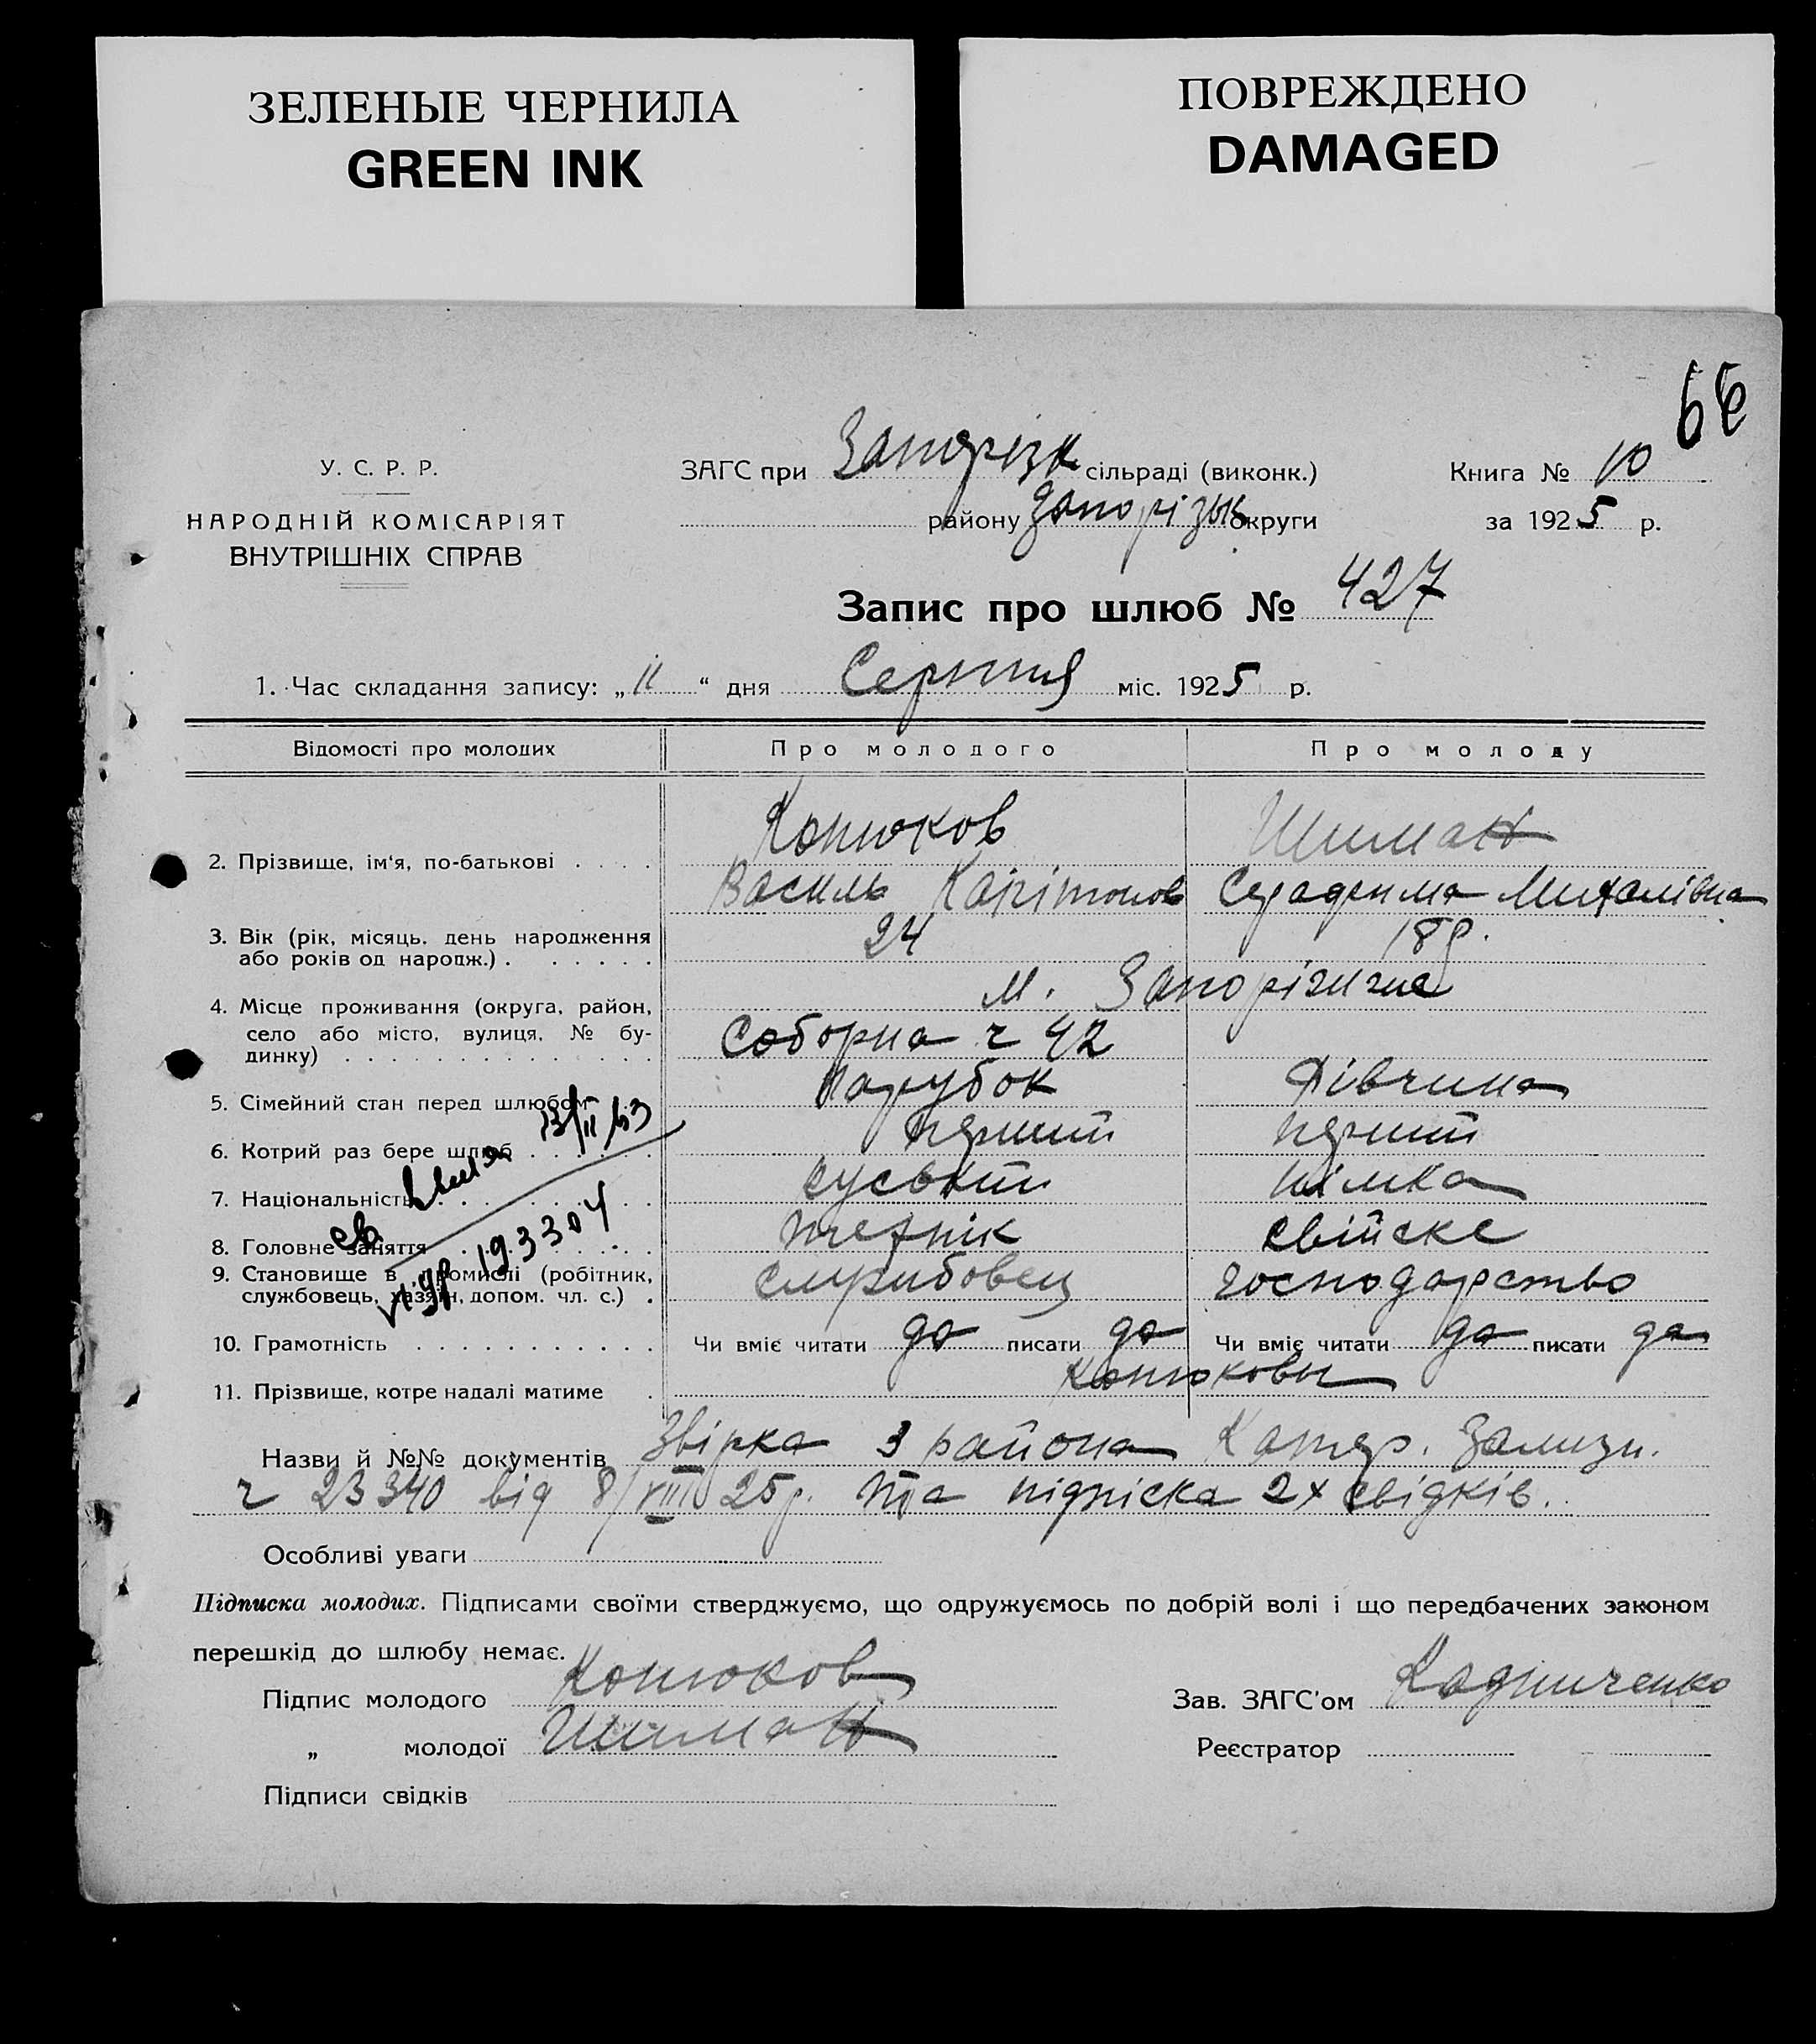 ЗЕЛЕНЫЕ ЧЕРНИЛА
GREEN INK
ПОВРЕЖДЕНО
DAMAGED
У. С. Р. Р.
НАРОДНІЙ КОМІСАРІЯТ
ВНУТРІШНІХ СПРАВ
ЗАГС при Запорізк сільраді (виконк.)
району Запорізьк округи
Книга № 10
за 1925 р.
Запис про шлюб № 427
1. Час складання запису: „11“ дня Серпня міс. 1925 р.
Відомості про молодих Про молодого Про молоду
2. Прізвище, ім'я, по-батькові . . . . Конюков Шиман
Василь Харітонов Серафима Михалівна
3. Вік (рік, місяць, день народження 24 18р.
або років од народж.) . . . . . .
4. Місце проживання (округа, район, м. Запоріжжя
село або місто, вулиця, № бу-
динку) . . . . . . . . . . . . . . Соборна ч 42
5. Сімейний стан перед шлюбом парубок Дівчина
6. Котрий раз бере шлюб . . . . . . перший перший
7. Національність . . . . . . . . . руський німка
8. Головне заняття . . . . . . . . технік свійске
9. Становище в промислі (робітник,
службовець, хазяїн, допом. чл. с.) . службовец господарство
10. Грамотність . . . . . . . . . . . Чи вміє читати да писати да Чи вміє читати да писати да
11. Прізвище, котре надалі матиме . Конюковы
Назви й №№ документів Звірка 3 района Катер. Зализн.
ч 23340 від 8/VIII 25р. та підпіска 2х свідків.
Особливі уваги
Підписка молодих. Підписами своїми стверджуємо, що одружуємось по добрій волі і що передбачених законом
перешкід до шлюбу немає.
Підпис молодого Конюков
Зав. ЗАГС'ом
„ молодої Шиман
Реєстратор
Підписи свідків